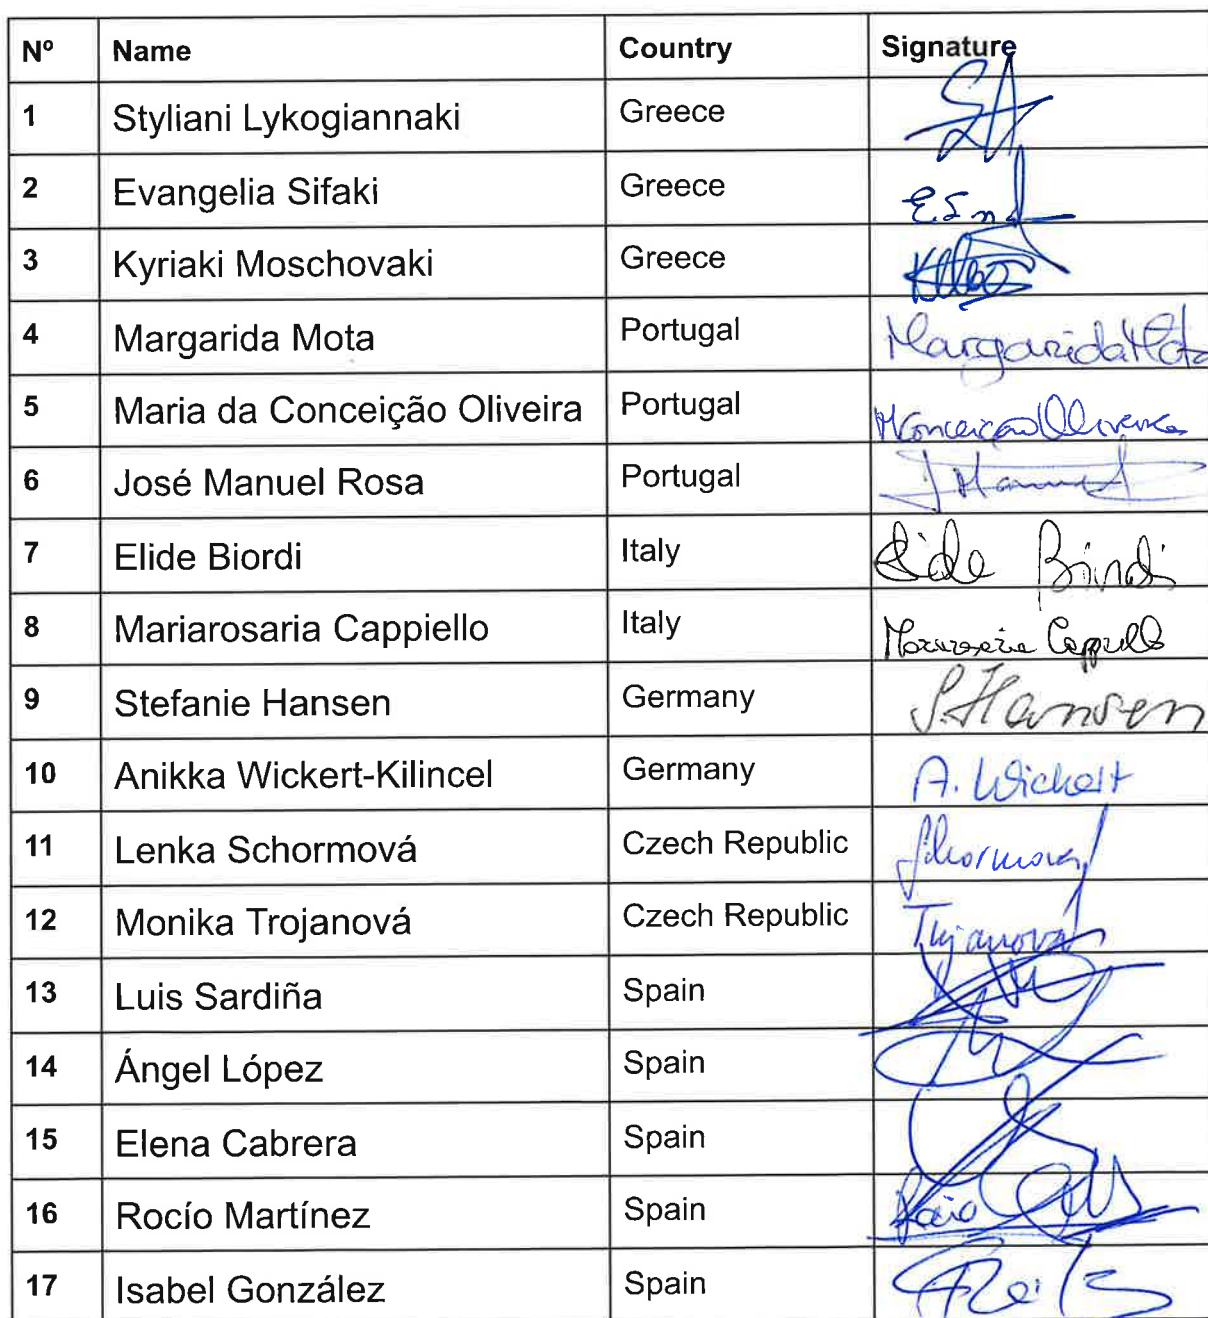 Nº Name Country Signature
1 Styliani Lykogiannaki Greece
2 Evangelia Sifaki Greece
3 Kyriaki Moschovaki Greece
4 Margarida Mota Portugal Margarida Mota
5 Maria da Conceição Oliveira Portugal MConceição Oliveira
6 José Manuel Rosa Portugal
7 Elide Biordi Italy Elide Biordi
8 Mariarosaria Cappiello Italy Mariarosaria Cappiello
9 Stefanie Hansen Germany S. Hansen
10 Anikka Wickert-Kilincel Germany A. Wickert
11 Lenka Schormová Czech Republic Schormová
12 Monika Trojanová Czech Republic Trojanová
13 Luis Sardiña Spain
14 Ángel López Spain
15 Elena Cabrera Spain
16 Rocío Martínez Spain Rocío
17 Isabel González Spain